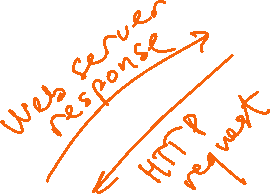 Web server
response
HTTP
request